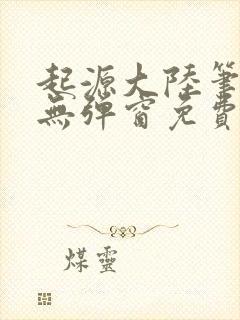 起源大陸筆
無彈窗免費
煤靈